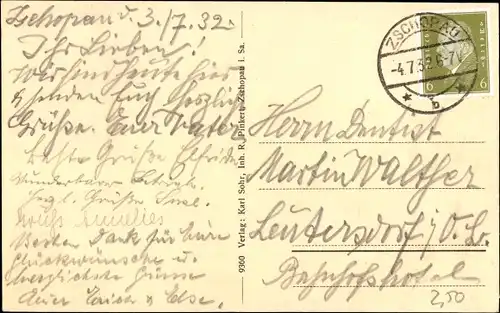 Zschopau d. 3./7.32.
Ihr Lieben!
Wir sind heute hier
u. senden Euch herzliche
Grüße. Euer Vater
beste Grüße Elfriede
Herzl. Grüße
Besten Dank für Eure
Glückwünsche u.
herzlichste Grüße
Euer u. Else.
9360 Verlag: Karl Sohr, Inh. R. Pinkert, Zschopau i. Sa.
ZSCHOPAU
-4.7.32.6-7V.
* b *
6 6
Herrn Dentist
Martin Walther
Leutersdorf i/O. L.
Bahnhofshotel
2,50